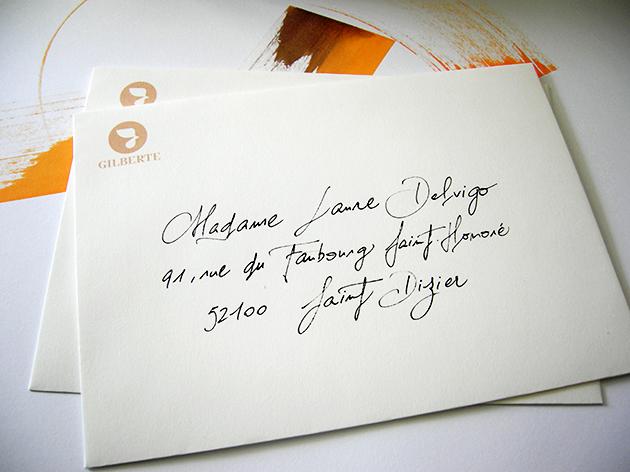 GILBERTE
Madame Laure Delvigo
91, rue du Faubourg Saint-Honoré
52100 Saint Dizier